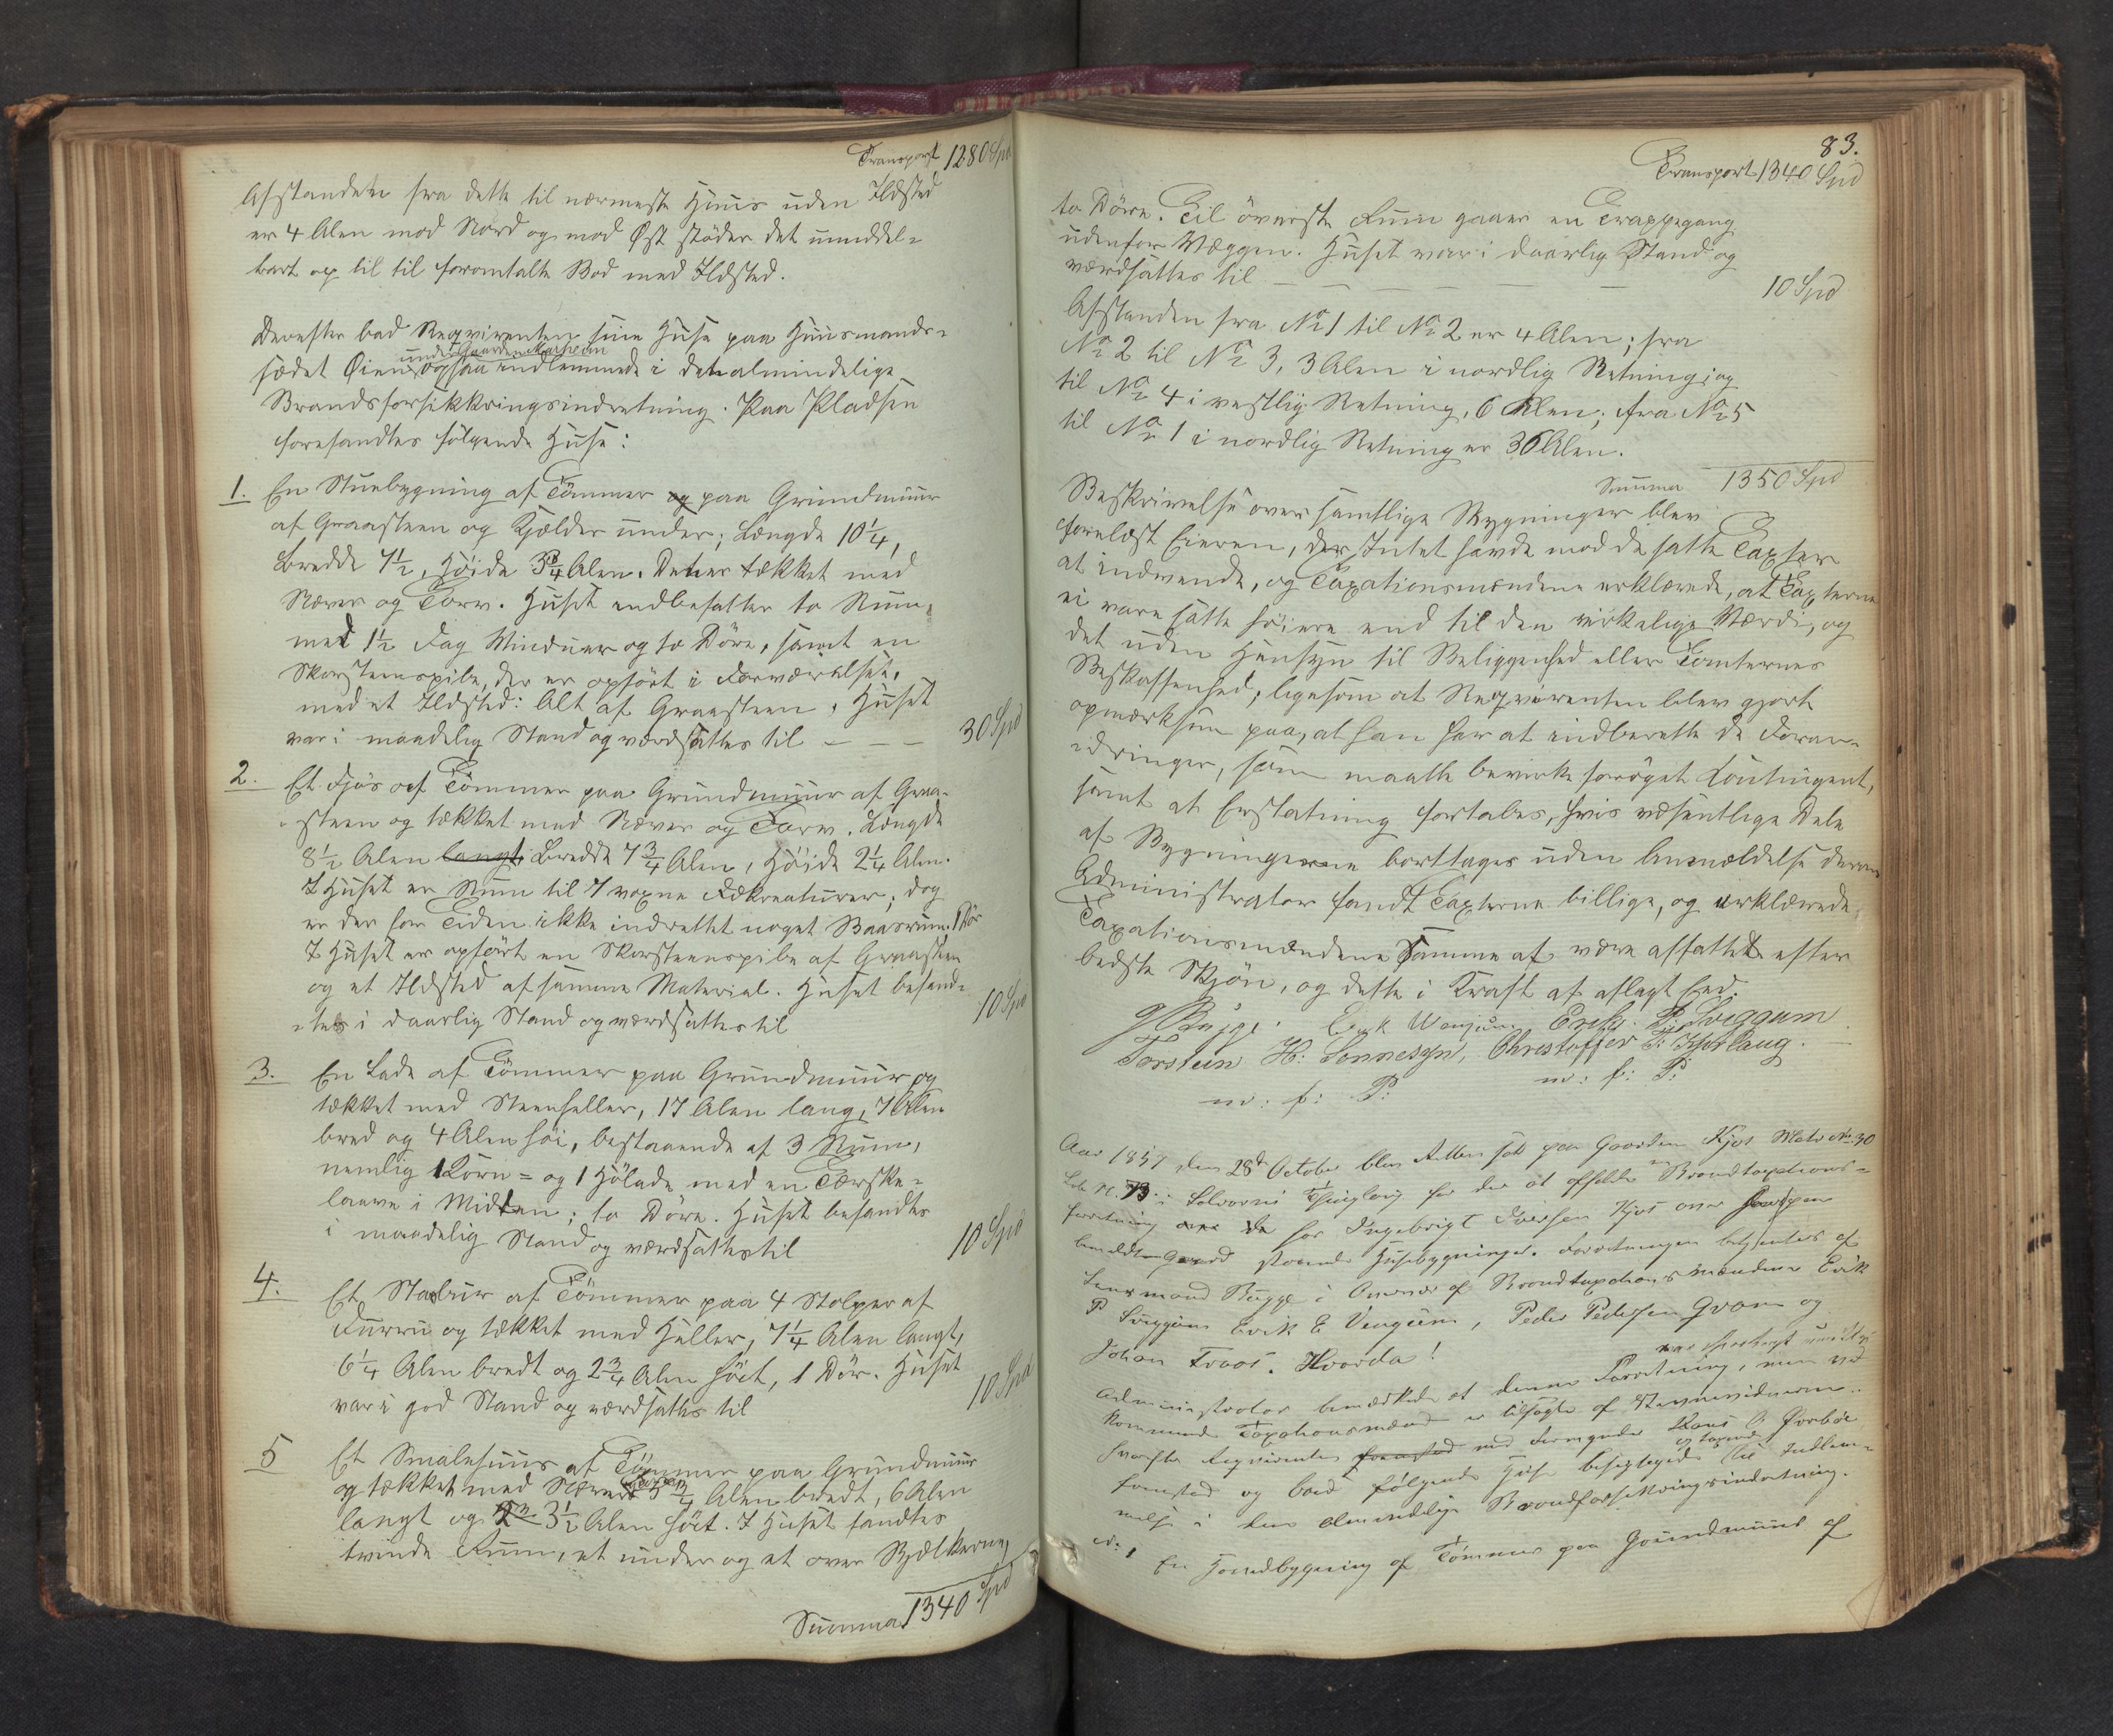 Transport 1280 Spd
Afstanden fra dette til nærmeste Huus uden Ildsted
er 4 Alen mod Nord og mod Øst stöder det umiddel-
bart op til til foromtalte Bod med Ildsted.
Derefter bad Reqvirenten sine Huse paa Huusmands-
under Gaarden Marheim
sædet Øien ogsaa indlemmede i den almindelige
Brandforsikkringsindretning. Paa Pladsen
forefandtes fölgende Huse:
1. En Stuebygning af Tömmer og paa Grundmuur
af Graasteen og Kjelder under; Længde 10 1/4,
Bredde 7 1/2, Höide 3 3/4 Alen. Den er tækket med
Næver og Torv. Huset indbefatter to Rum,
med 1 1/2 Fag Vinduer og to Döre, samt en
Skorsteenspibe, der er opfört i Forværelset,
med et Ildsted: Alt af Graasteen. Huset
var i maadelig Stand og værdsattes til - - - 30 Spd
2. Et Fjös af Tömmer paa Grundmuur af Graa-
steen og tækket med Næver og Torv. Længde
8 1/2 Alen langt, Bredde 7 3/4 Alen, Höide 2 1/4 Alen.
I Huset er Rum til 7 voxne Fækreaturer; dog
er der for Tiden ikke indrettet noget Baasrum. 1 Dör
I Huset er opfört en Skorsteenspibe af Graasteen
og et Ildsted af samme Material. Huset befand-
tes i daarlig Stand og værdsattes til 10 Spd
3. En Lade af Tömmer paa Grundmuur og
tækket med Steenheller, 17 Alen lang, 7 Alen
bred og 4 Alen höi, bestaaende af 3 Rum,
nemlig 1 Korn- og 1 Hölade med en Tærske-
laave i Midten; to Döre. Huset befandtes
i maadelig Stand og værdsattes til 10 Spd
4. Et Stabur af Tömmer paa 4 Stolper af
Furru og tækket med Heller, 7 1/4 Alen langt,
6 1/4 Alen bredt og 2 3/4 Alen höit, 1 Dör. Huset
var i god Stand og værdsattes til 10 Spd
5 Et Smalehuus af Tömmer paa Grundmuur
og tækket med Næver 5 3/4 Alen bredt, 6 Alen
langt og 3 1/2 Alen höit. I Huset fandtes
tvende Rum, et under og et over Bjelkerne,
Summa 1340 Spd
83.
Transport 1340 Spd
to Döre. Til överste Rum gaaer en Trappegang
udenfor Væggen. Huset var i daarlig Stand og
værdsattes til - - - - - 10 Spd
Afstanden fra No 1 til No 2 er 4 Alen; fra
No 2 til No 3, 3 Alen i nordlig Retning; og
til No 4 i vestlig Retning, 6 Alen; fra No 5
til No 1 i nordlig Retning er 36 Alen.
Summa 1350 Spd
Beskrivelse over samtlige Bygninger blev
forelæst Eieren, der Intet havde mod de satte Taxter
at indvende, og Taxationsmændene erklærede, at Taxterne
ei vare satte höiere end til den virkelige Værdi, og
det uden Hensyn til Beliggenhed eller Tomternes
Beskaffenhed, ligesom at Reqvirenten blev gjort
opmærksom paa, at han har at indberette de Foran-
dringer, som maatte bevirke foröget Contingent,
samt at Erstatning fortabes, hvis væsentlige Dele
af Bygningerne borttages uden Anmældelse derom
Administrator fandt Taxterne billige, og erklærede
Taxationsmændene Samme at være affattet efter
bedste Skjön, og dette i Kraft af aflagt Eed.
Bugge. Erik Wenjum, Erik P: Sviggum
Torstein H: Sonnesyn, Christoffer S: Kjörlaug.
m: f: P: m: f: P:
Aar 1857, den 28de October blev Retten sat paa Gaarden Kjos Matr No 30
Löb N. 73 i Solvorns Thinglaug for der at afholde en Brandtaxations-
forretning over de for Ingebrigt Iversen Kjos over paa
bemeldte Gaard staaende Husebygninger. Forretningen betjentes af
Lensmand Bugge i Overvær af Brandtaxationsmændene Erik
P Sviggum Erik E Venjum, Peder Pedersen Qvam og
Johan Froos. Hvorda!
Administrator bemærkede at denne Forretning, var
Taxationsmænd er tilsagte af Stevnevidnerne.
Reqvirenten fremstod ved
fremstod og bad fölgende Huse besigtigede og taxerede til Indlem-
melse i den almindelige Brandforsikringsindretning.
N: 1 En Hovedbygning af Tömmer paa Grundmuur af